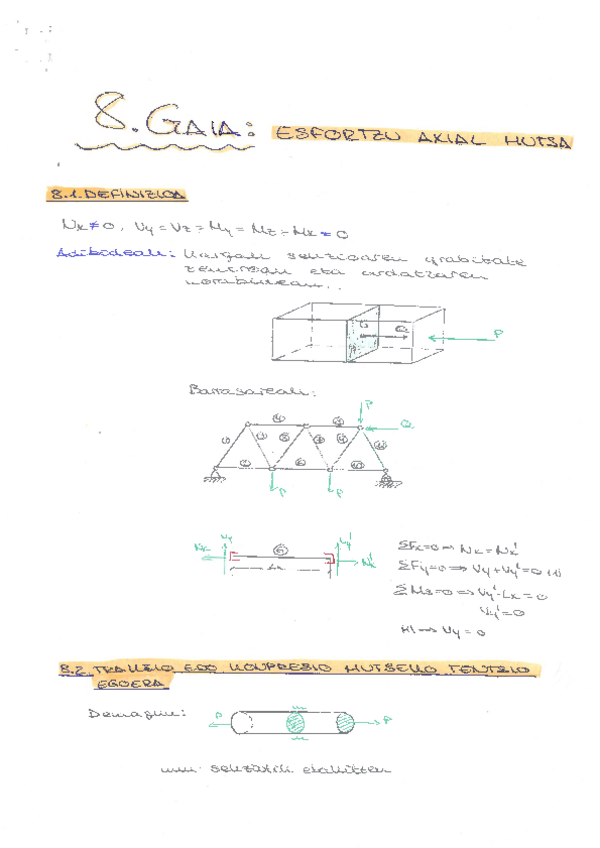 8. GAIA: ESFORTZU AXIAL HUTSA
8.1. DEFINIZIOA
Nx ≠ 0, Vy = Vz = My = Mz = Mx = 0
Adibideak: Kargak sekzioaren grabitate
zentroan eta ardatzaren
norabidean..
G
P
Barrasareak:
P
Q
P
P
Nx
Vy
6
Vy'
Nx'
Lx
ΣFx=0 ⇒ Nx = Nx'
ΣFy=0 ⇒ Vy + Vy' = 0 (*)
ΣMz=0 ⇒ Vy'·Lx = 0
Vy' = 0
(*) ⇒ Vy = 0
8.2. TRAKZIO EDO KONPRESIO HUTSEKO TENTSIO
EGOERA
Demagun:
P
m
m
P
m-m sekziotik ebakitzen